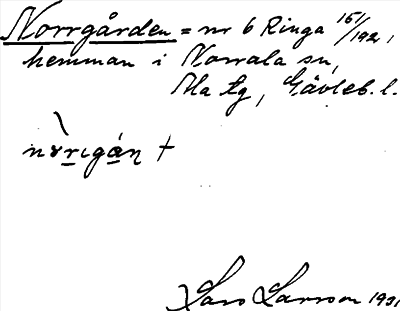 Norrgården = nr 6 Ringa 151/1921,
hemman i Norrala sn,
Ala tg, Gävleb. l.
nɤ̀rıgán̥ +
Lars Larsson 1931